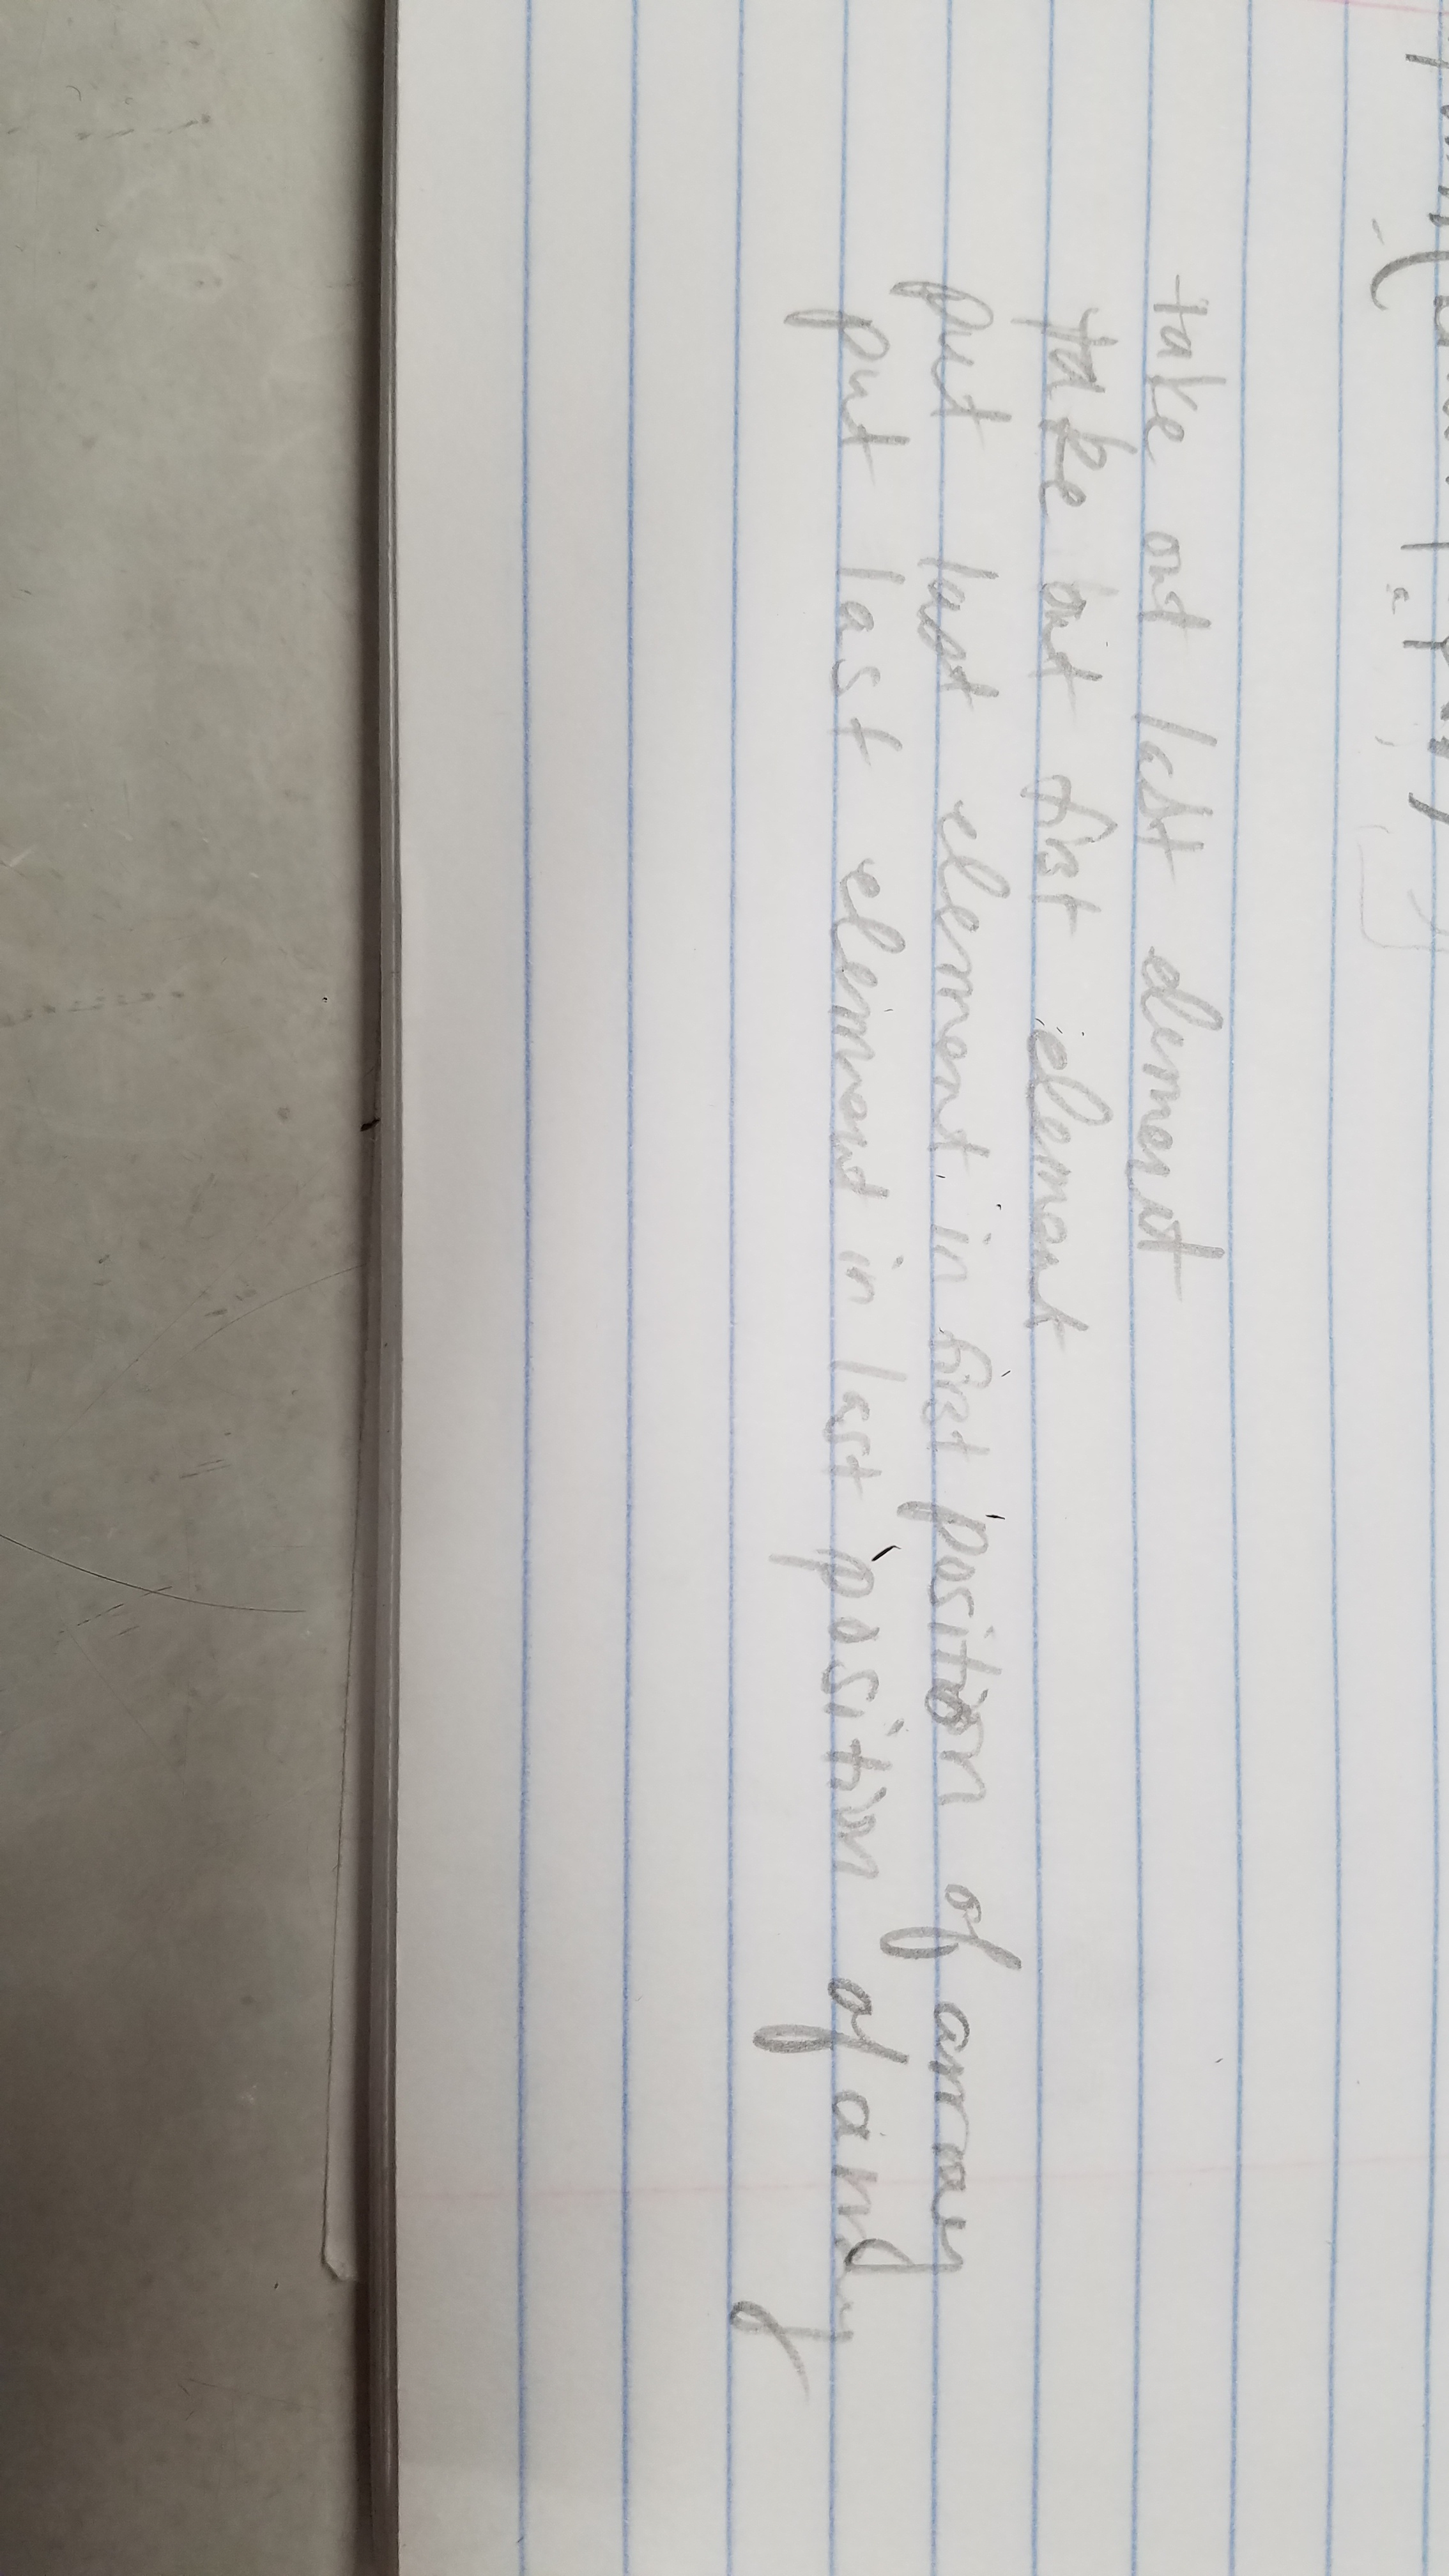 take out last element
take out first element
put last element in first position of array
put last element in last position of array